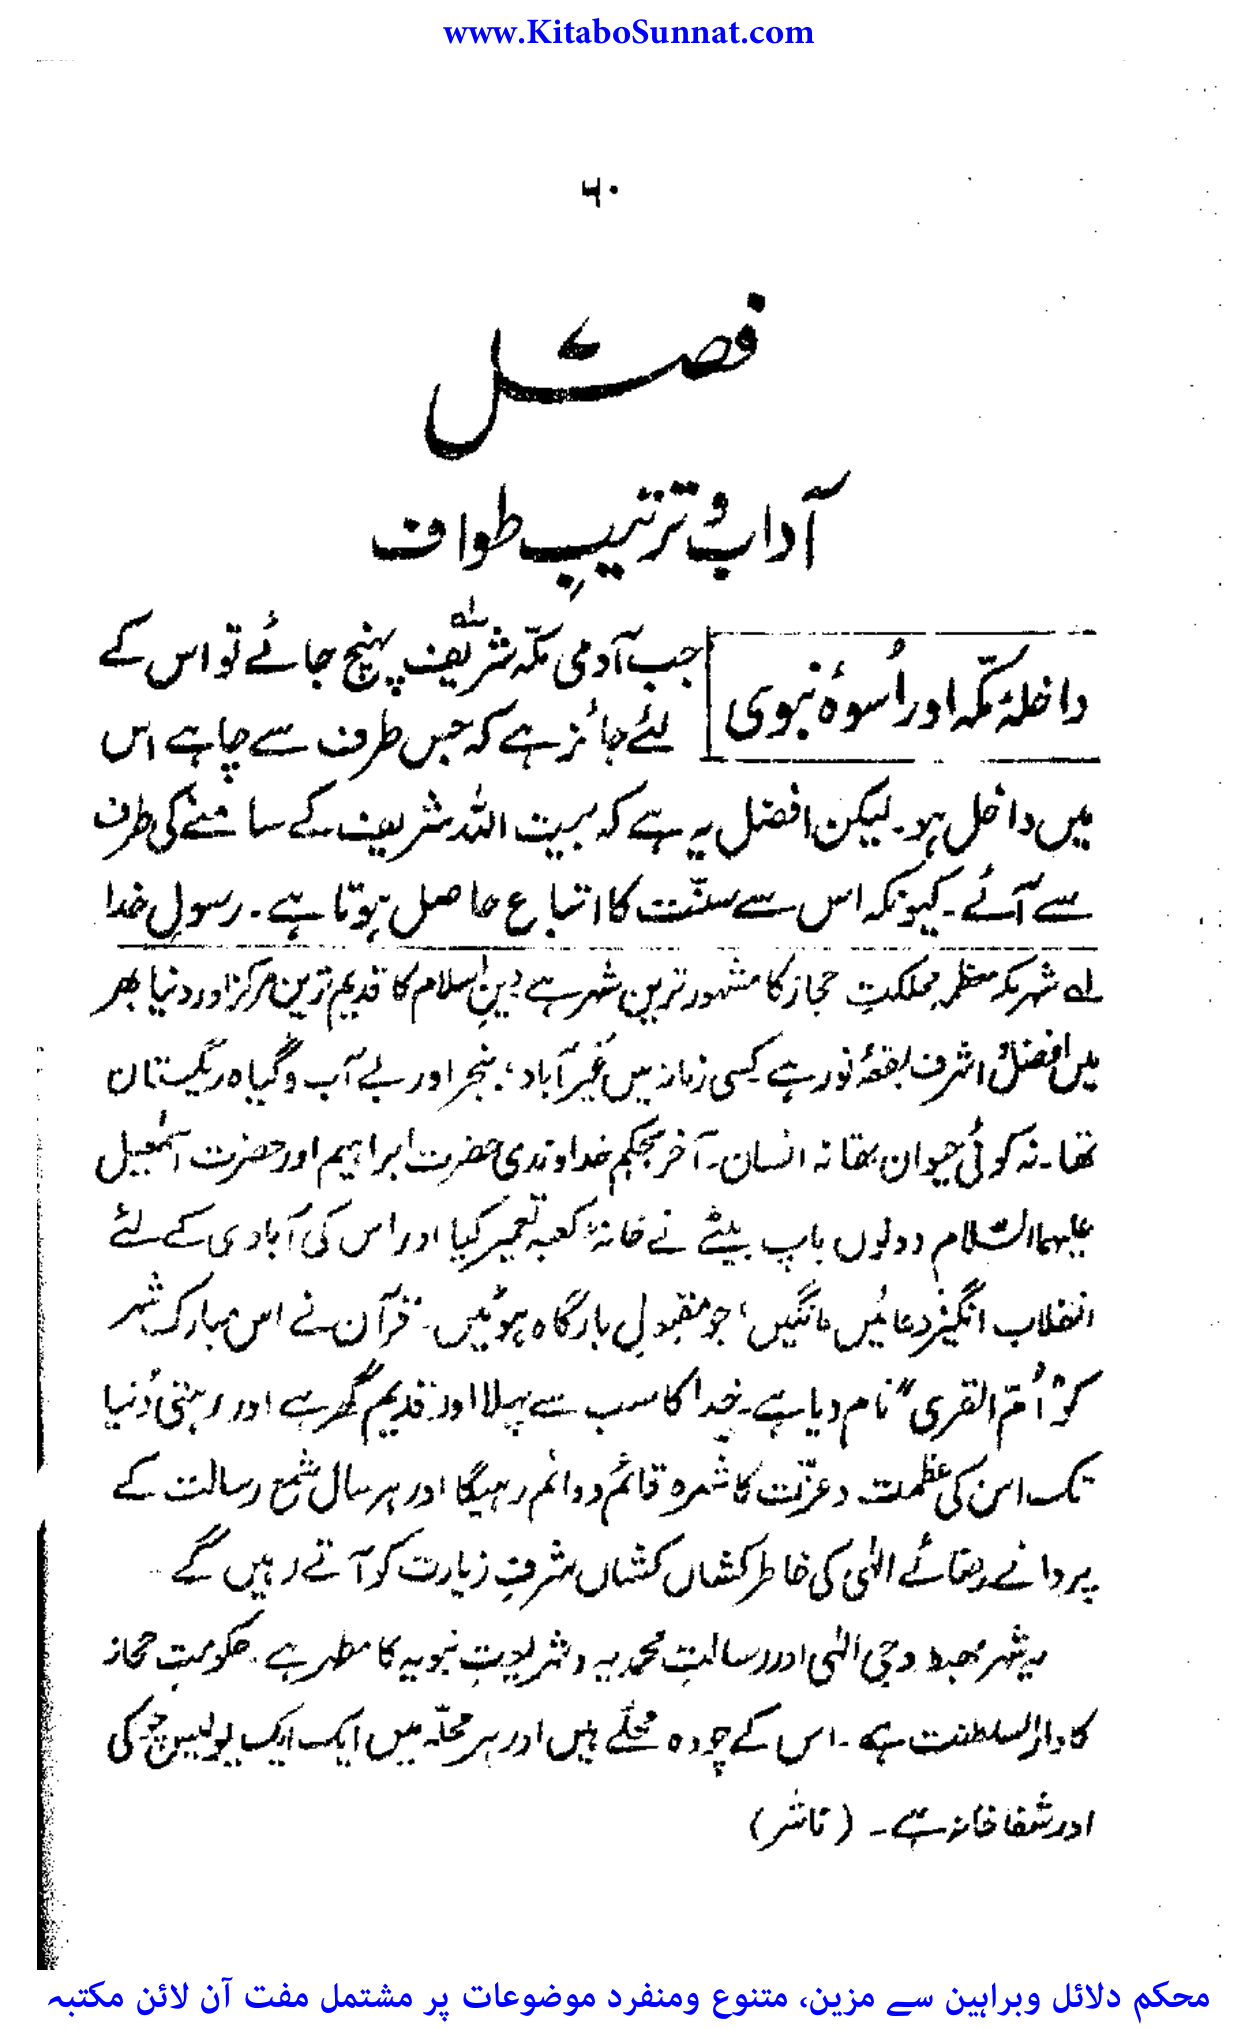 www.KitaboSunnat.com
۶۰
فصل
آداب و ترتیبِ طواف
داخلۂ مکّہ اور اُسوۂ نبوی
جب آدمی مکّہ شریف پہنچ جائے تو اس کے
لئے جائز ہے کہ جس طرف سے چاہے اس
میں داخل ہو۔ لیکن افضل یہ ہے کہ بیت اللہ شریف کے سامنے کی طرف
سے آئے۔ کیونکہ اس سے سنّت کا اتباع حاصل ہوتا ہے۔ رسولِ خدا
لہ شہر مکہ معظمہ مملکتِ حجاز کا مشہور ترین شہر ہے دینِ اسلام کا قدیم ترین مرکز اور دنیا بھر
میں افضل و اشرف بقعۂ نور ہے کسی زمانہ میں غیر آباد، بنجر اور بے آب و گیاہ ریگستان
تھا۔ نہ کوئی حیوان تھا نہ انسان۔ آخر بحکمِ خداوندی حضرت ابراہیم اور حضرت اسمٰعیل
علیہما السّلام دونوں باپ بیٹے نے خانۂ کعبہ تعمیر کیا اور اس کی آبادی کے لئے
انقلاب انگیز دعائیں مانگیں، جو مقبولِ بارگاہ ہوئیں۔ قرآن نے اس مبارک شہر
کو "اُمّ القری" نام دیا ہے۔ خدا کا سب سے پہلا اور قدیم گھر ہے اور رہتی دُنیا
تک اس کی عظمت و عزّت کا شہرہ قائم و دائم رہیگا اور ہر سال شمع رسالت کے
پروانے رضائے الٰہی کی خاطر کشاں کشاں شرفِ زیارت کو آتے رہیں گے۔
یہ شہر مہبط وحی الٰہی اور رسالتِ محمدیہ و شریعتِ نبویہ کا مظہر ہے۔ حکومتِ حجاز
کا دار السلطنت ہے۔ اس کے چودہ محلّے ہیں اور ہر محلّہ میں ایک ایک پولیس چوکی
اور شفا خانہ ہے۔ (ناشر)
محکم دلائل وبراہین سے مزین، متنوع ومنفرد موضوعات پر مشتمل مفت آن لائن مکتبہ